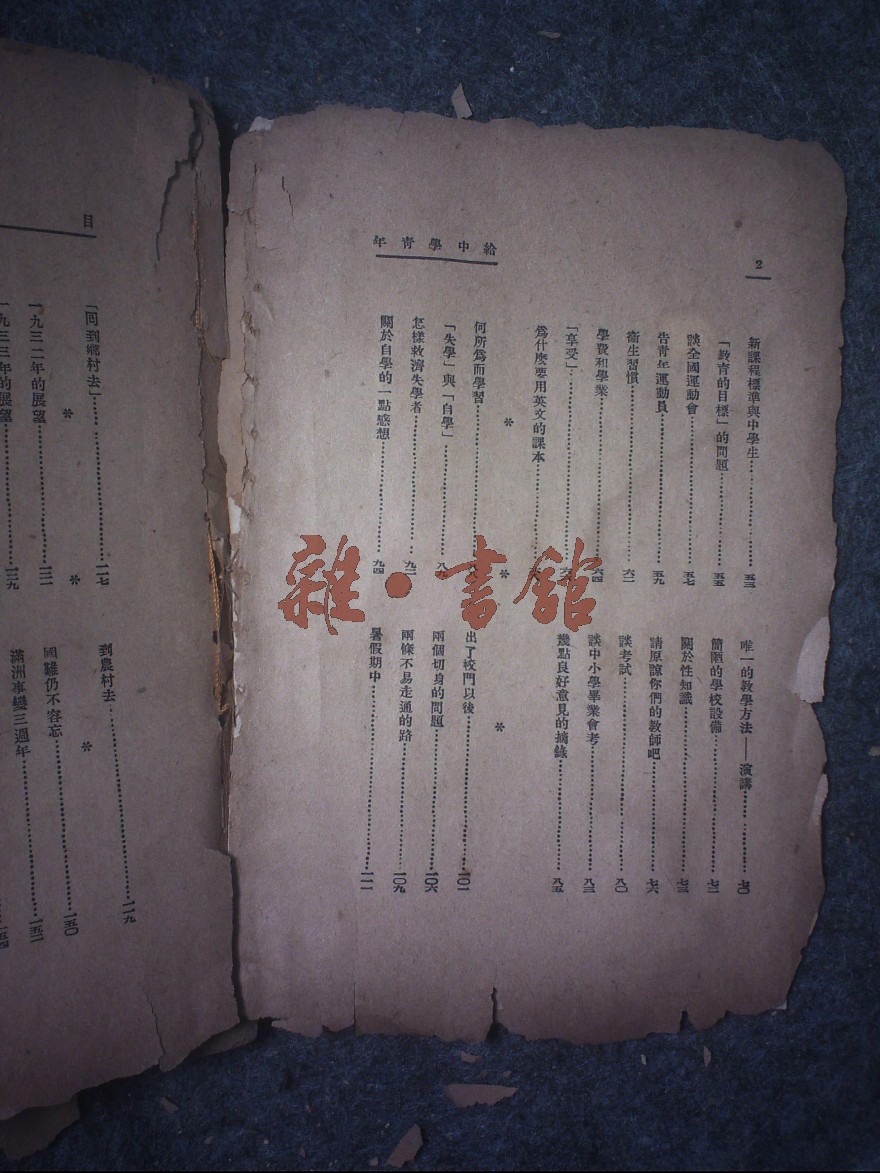 2
給中學青年
新課程標準與中學生……五三
「教育的目標」的問題……五五
談全國運動會……五七
告青年運動員……五九
衞生習慣……六二
學費和學業……六四
「享受」……
爲什麼要用英文的課本……
*
何所爲而學習……
「失學」與「自學」……
怎樣救濟失學者……
關於自學的一點感想……九四
唯一的教學方法——演講……七〇
簡陋的學校設備……七二
關於性知識……七三
請原諒你們的教師吧……七六
談考試……八〇
談中小學畢業會考……八三
幾點良好意見的摘錄……八五
*
*
出了校門以後……一〇一
兩個切身的問題……一〇六
兩條不易走通的路……一〇九
暑假期中……一一一
目
「回到鄉村去」……一一七
*
一九三二年的展望……
一九三三年的展望……一二九
到農村去……一一九
*
*
國難仍不容忘……一五〇
滿洲事變三週年……一五二
雜·書館